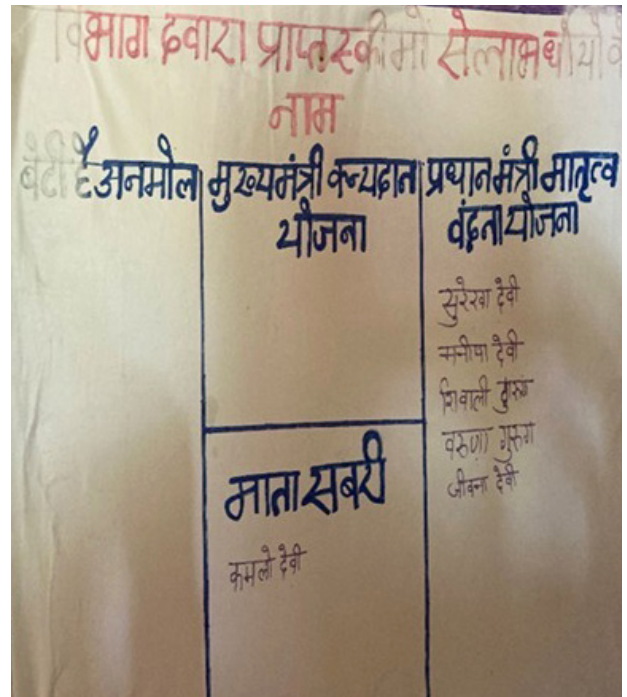 विभाग दवारा प्राप्त स्कीमो से लाभर्थीयो के
नाम
बेटी है अनमोल
मुख्यमंत्री कन्यदान
योजना
प्रधानमंत्री मातृत्व
वंदना योजना
सुरेखा देवी
मनीषा देवी
शिवाली गुरुंग
वरुणा गुरुंग
जीवना देवी
माता सबरी
कमलो देवी